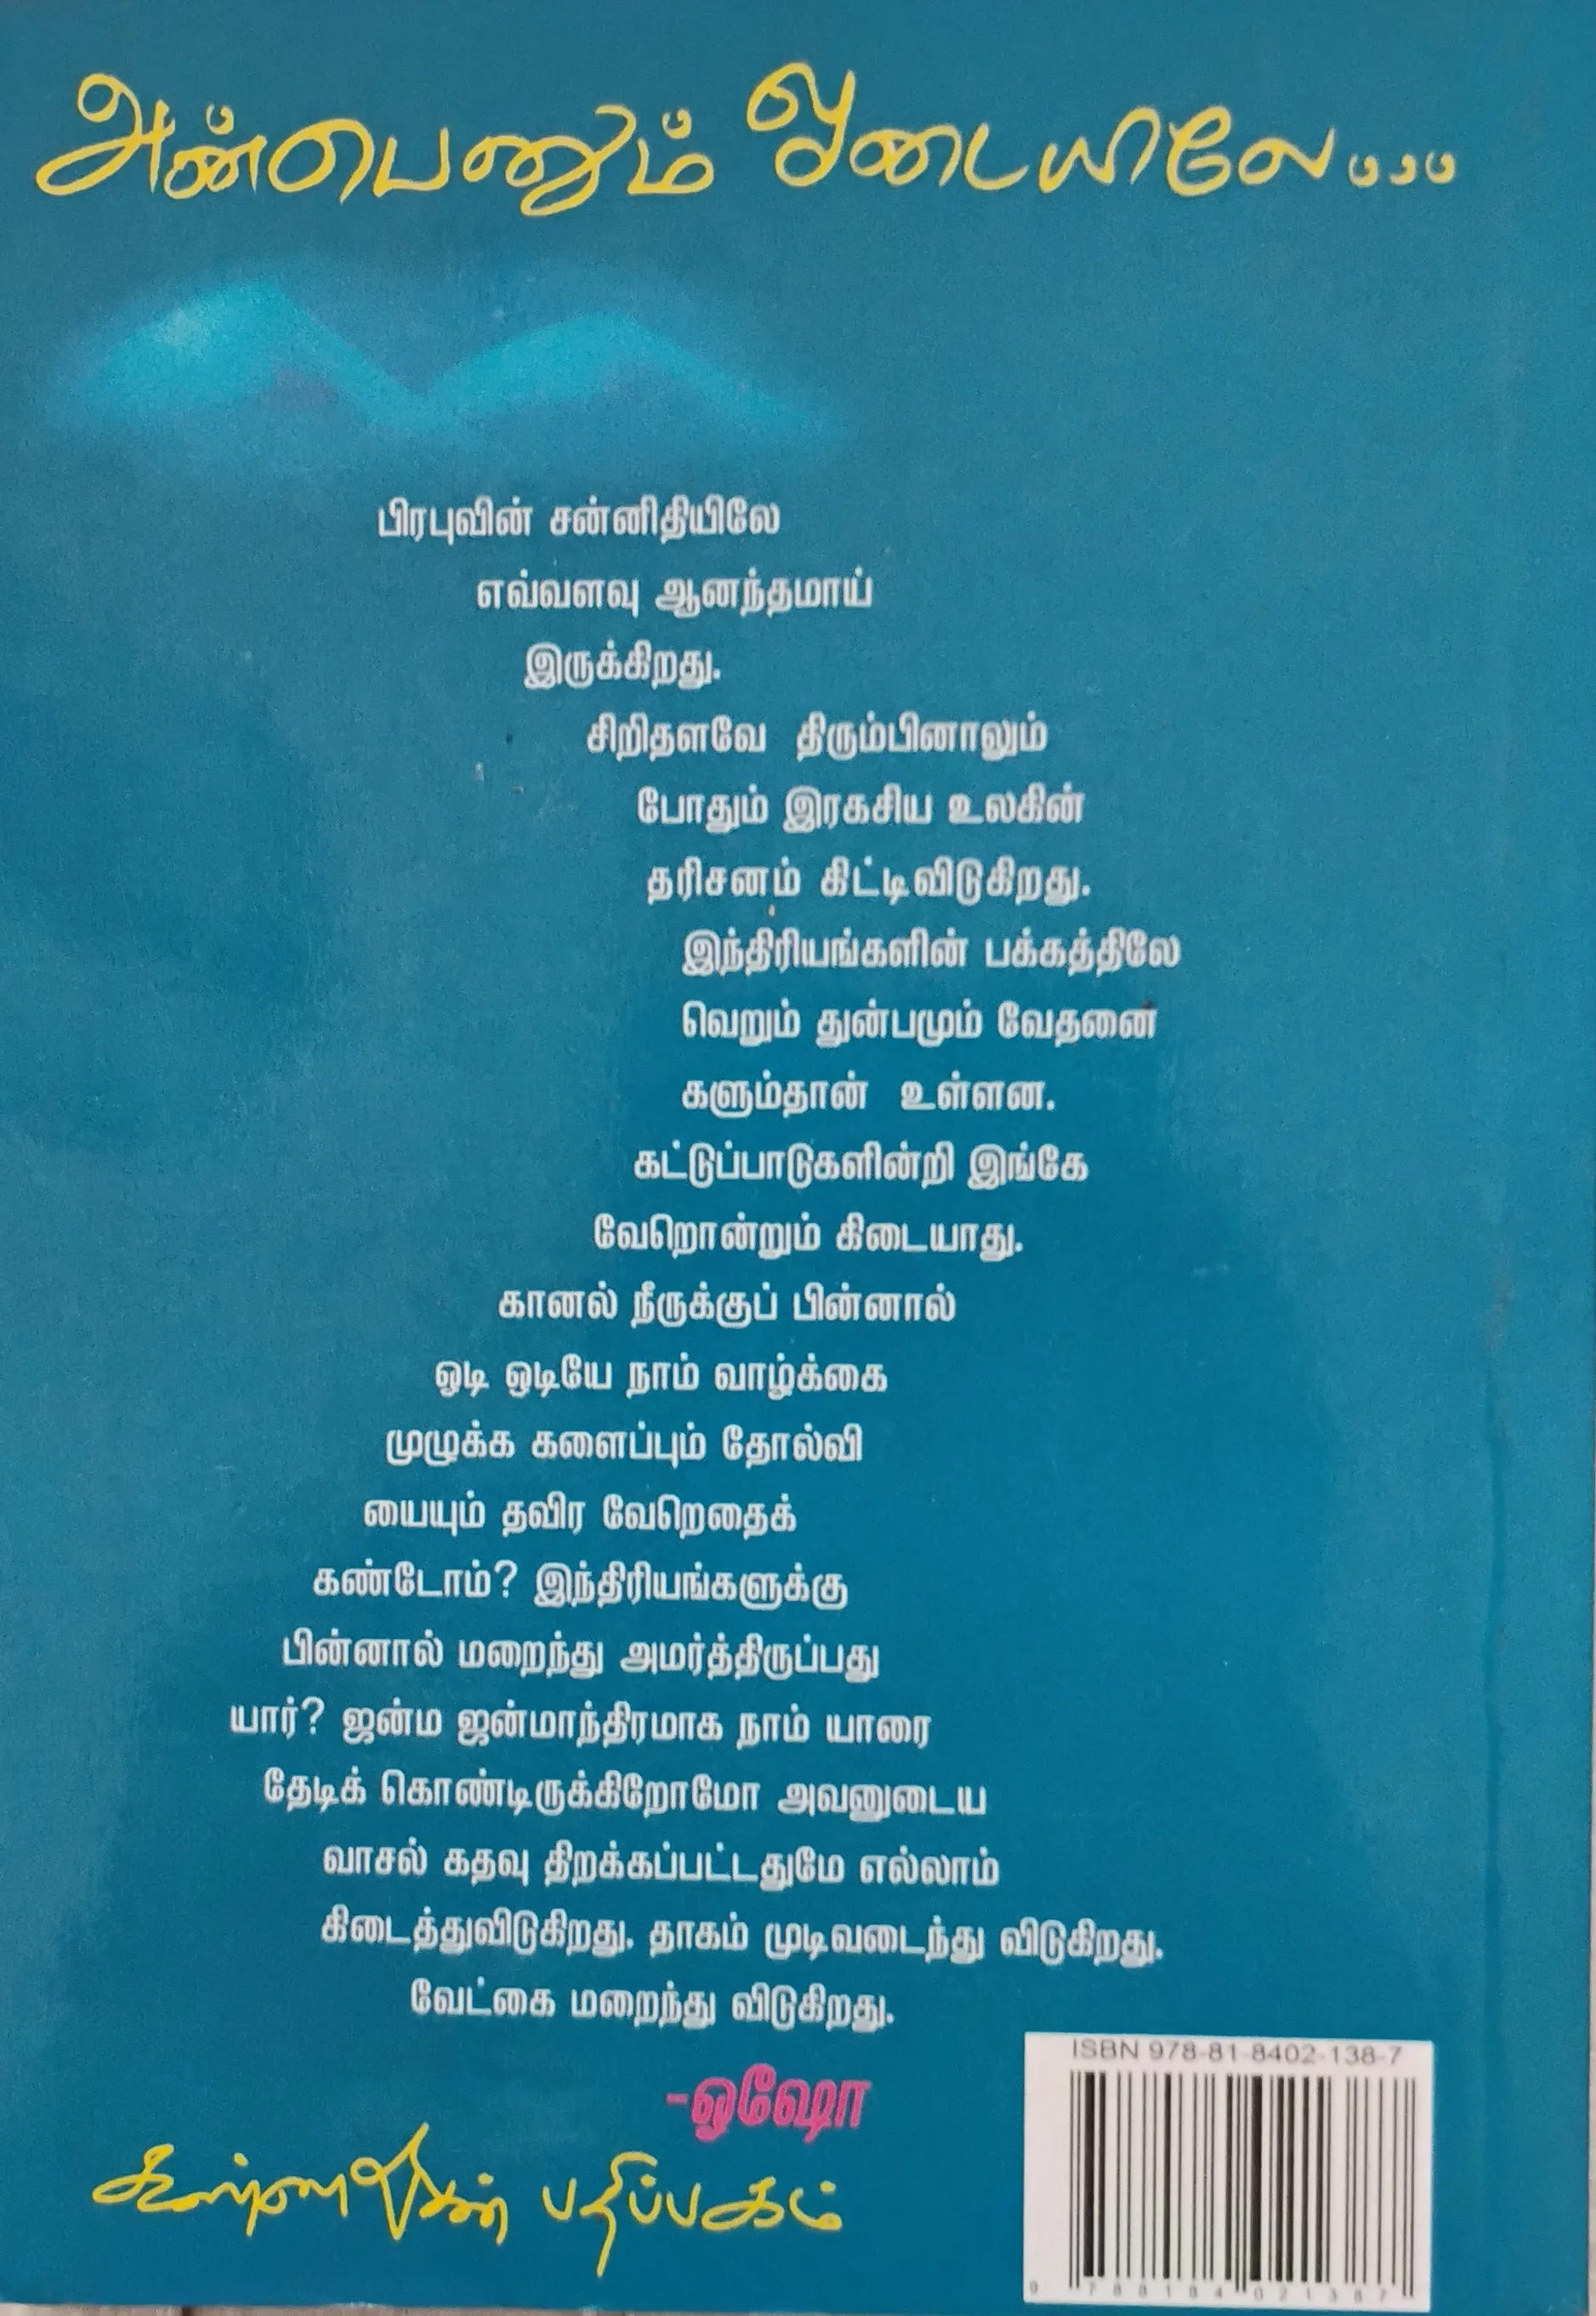 அன்பெனும் ஓடையிலே...
பிரபுவின் சன்னிதியிலே
எவ்வளவு ஆனந்தமாய்
இருக்கிறது.
சிறிதளவே திரும்பினாலும்
போதும் இரகசிய உலகின்
தரிசனம் கிட்டிவிடுகிறது.
இந்திரியங்களின் பக்கத்திலே
வெறும் துன்பமும் வேதனை
களும்தான் உள்ளன.
கட்டுப்பாடுகளின்றி இங்கே
வேறொன்றும் கிடையாது.
கானல் நீருக்குப் பின்னால்
ஓடி ஓடியே நாம் வாழ்க்கை
முழுக்க களைப்பும் தோல்வி
யையும் தவிர வேறெதைக்
கண்டோம்? இந்திரியங்களுக்கு
பின்னால் மறைந்து அமர்த்திருப்பது
யார்? ஜன்ம ஜன்மாந்திரமாக நாம் யாரை
தேடிக் கொண்டிருக்கிறோமோ அவனுடைய
வாசல் கதவு திறக்கப்பட்டதுமே எல்லாம்
கிடைத்துவிடுகிறது. தாகம் முடிவடைந்து விடுகிறது.
வேட்கை மறைந்து விடுகிறது.
-ஓஷோ
கண்ணதாசன் பதிப்பகம்
ISBN 978-81-8402-138-7
9 788184 021387